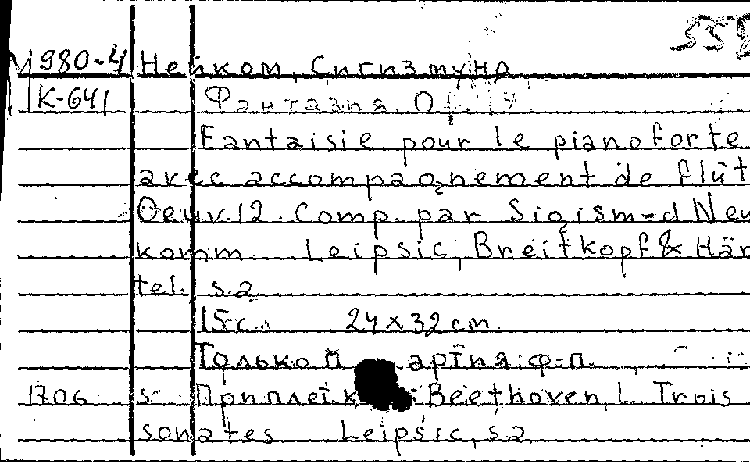 557
M980-4 Нейком, Сигизмунд
К-641 Фантазия. Op.
Fantaisie pour le pianoforte
avec accompagnement de flût
Oeuv.12. Comp. par Sigismond Neu
komm. Leipsic, Breitkopf & Här
tel. s.a.
15 с. 24 x 32 cm.
Только партия ф-п.
1706 s- Приплетк : Beethoven, L. Trois
sonates Leipsic, s.a.